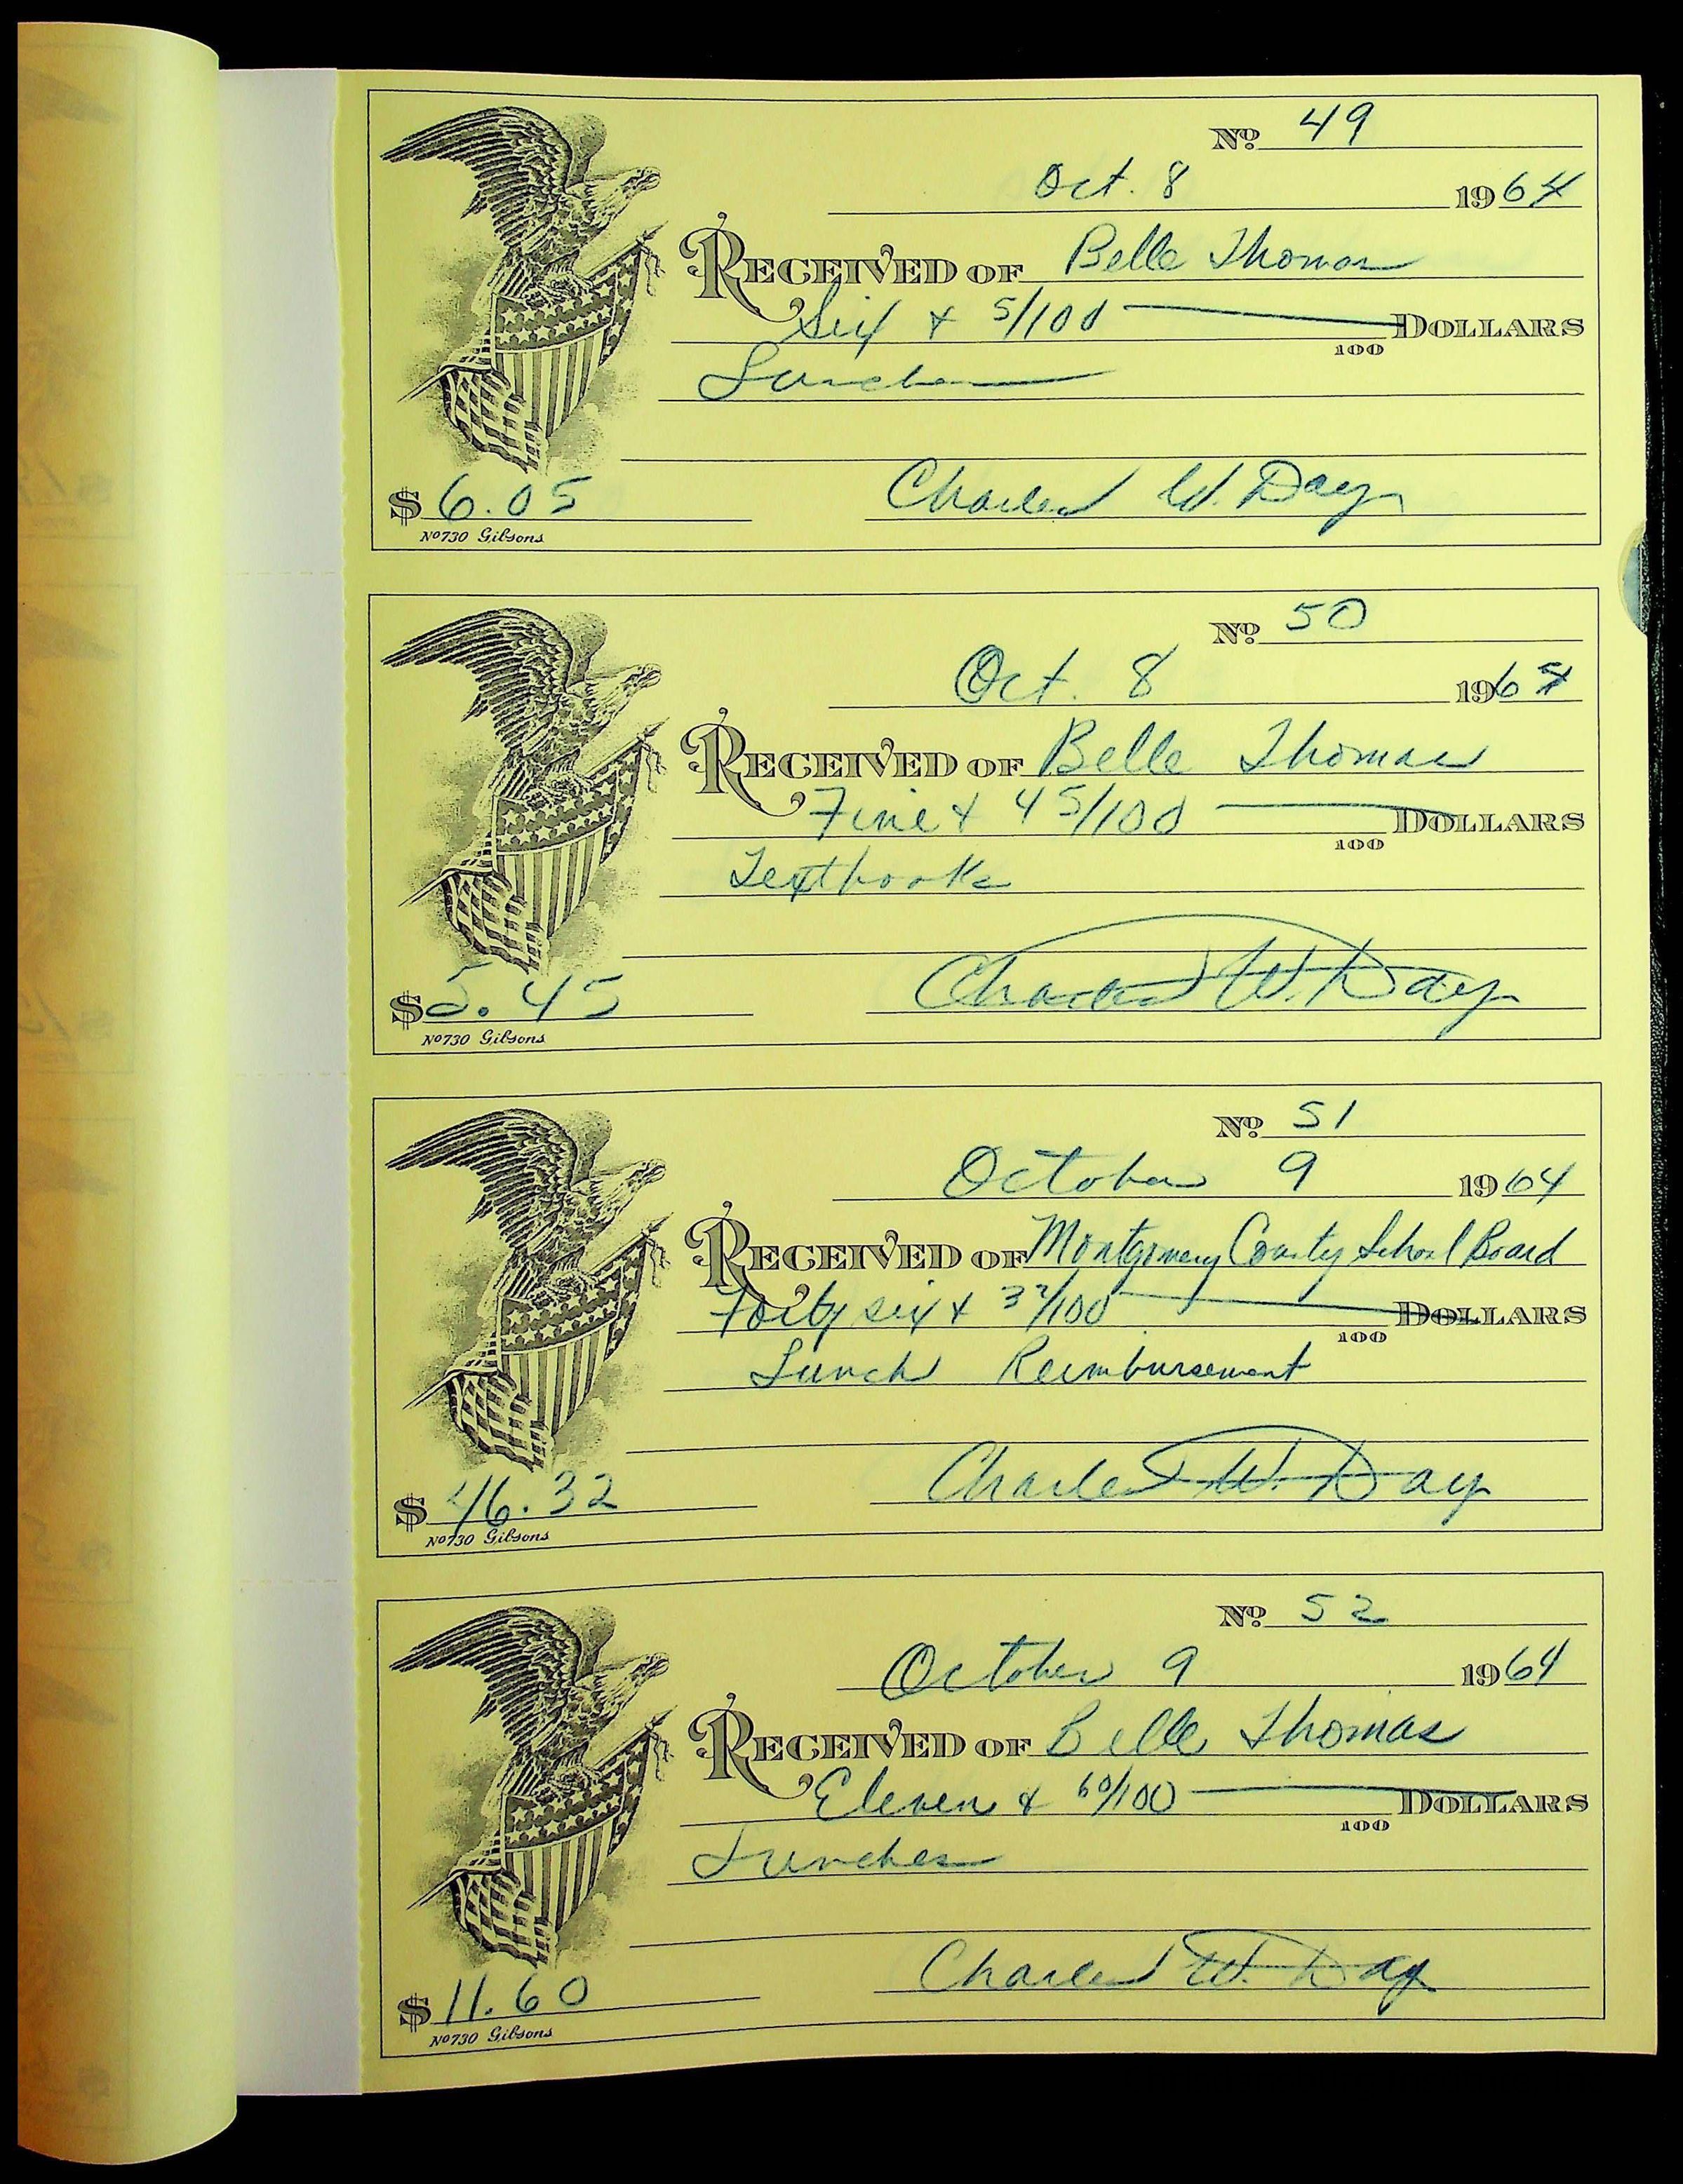 No 49
Oct. 8 1964
Received of Belle Thomas
Six + 5/100 Dollars
100
Lunches
$ 6.05 Charles W. Day
No 730 Gibsons
No 50
Oct. 8 1964
Received of Belle Thomas
Five + 45/100 Dollars
100
Textbooks
$ 5.45 Charles W. Day
No 730 Gibsons
No 51
October 9 1964
Received of Montgomery County School Board
Forty six + 32/100 Dollars
100
Lunch Reimbursement
$ 46.32 Charles W. Day
No 730 Gibsons
No 52
October 9 1964
Received of Belle Thomas
Eleven & 60/100 Dollars
100
Lunches
$ 11.60 Charles W. Day
No 730 Gibsons